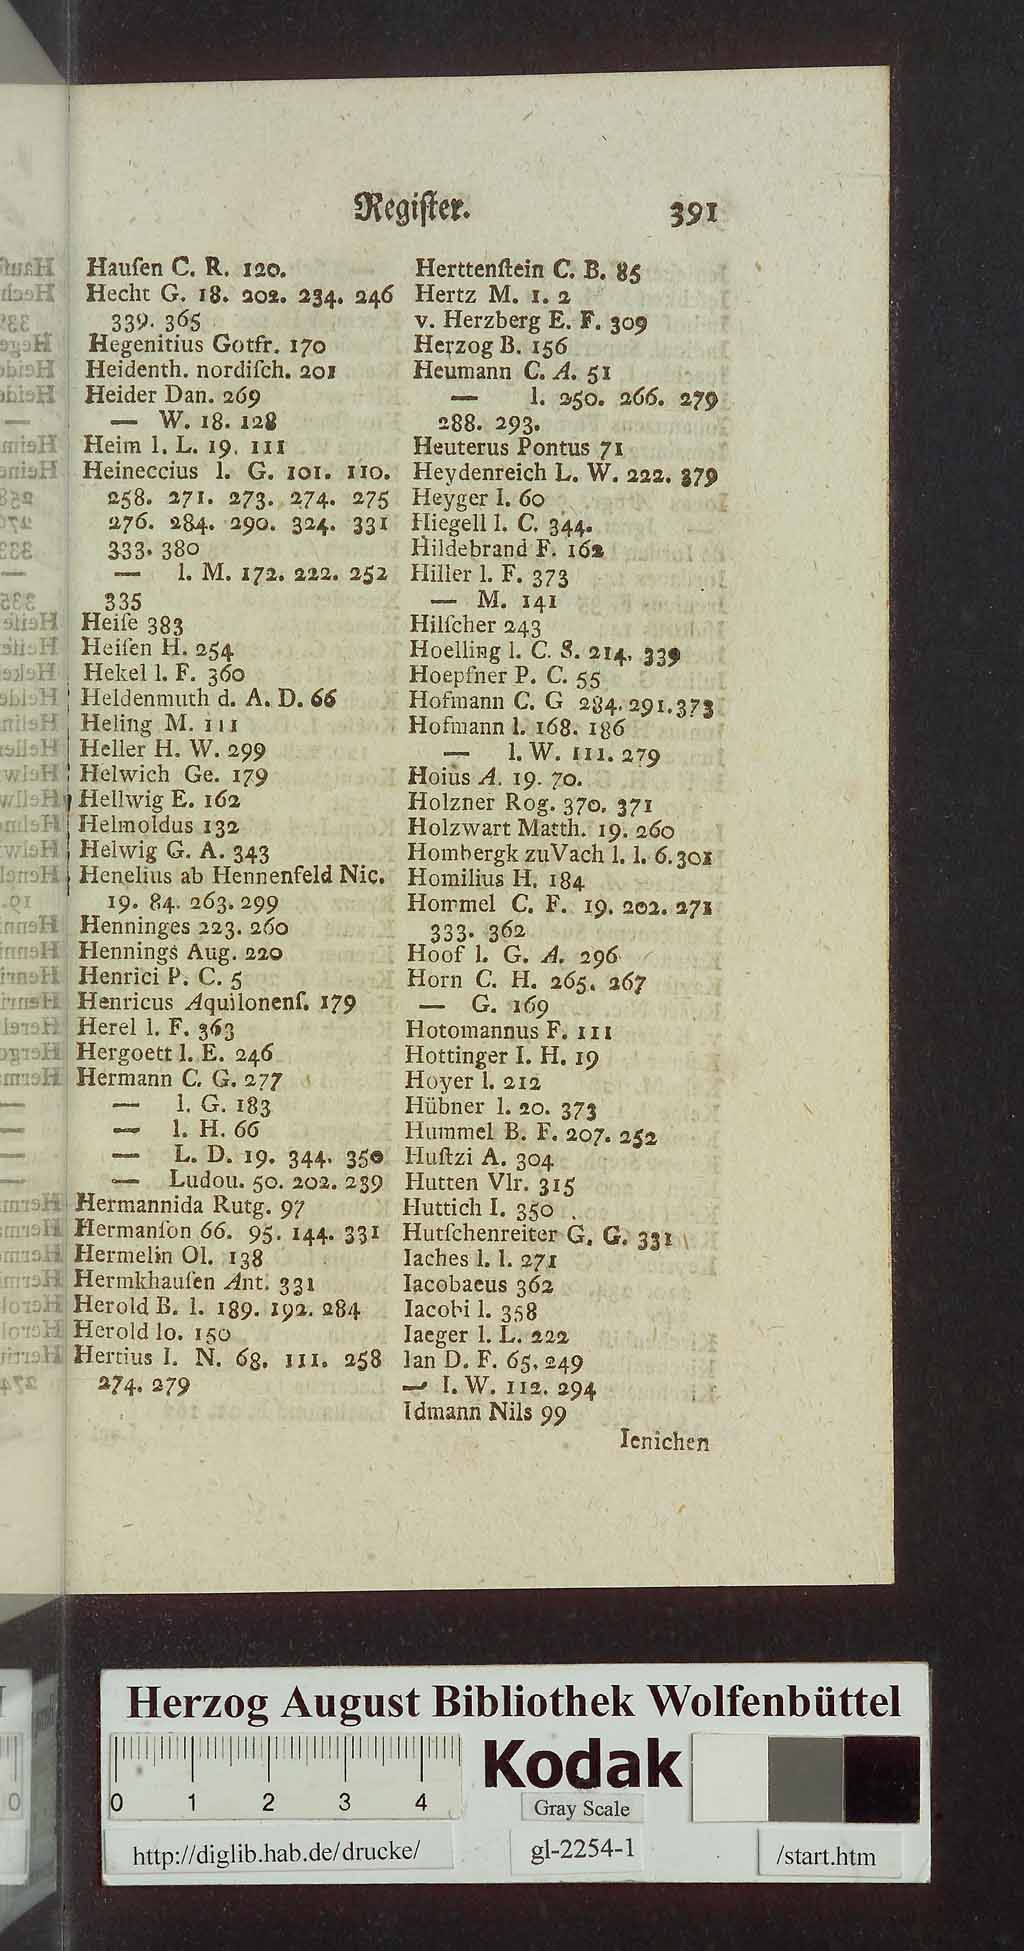 Regiſter.
391
Hauſen C. R. 120.
Hecht G. 18. 202. 234. 246
339. 365
Hegenitius Gotfr. 170
Heidenth. nordiſch. 201
Heider Dan. 269
— W. 18. 128
Heim l. L. 19. 111
Heineccius l. G. 101. 110.
258. 271. 273. 274. 275
276. 284. 290. 324. 331
333. 380
— l. M. 172. 222. 252
335
Heiſe 383
Heiſen H. 254
Hekel l. F. 360
Heldenmuth d. A. D. 66
Heling M. 111
Heller H. W. 299
Helwich Ge. 179
Hellwig E. 162
Helmoldus 132
Helwig G. A. 343
Henelius ab Hennenfeld Nic.
19. 84. 263. 299
Henninges 223. 260
Hennings Aug. 220
Henrici P. C. 5
Henricus Aquilonenſ. 179
Herel l. F. 363
Hergoett l. E. 246
Hermann C. G. 277
— l. G. 183
— l. H. 66
— L. D. 19. 344. 350
— Ludou. 50. 202. 239
Hermannida Rutg. 97
Hermanſon 66. 95. 144. 331
Hermelin Ol. 138
Hermkhauſen Ant. 331
Herold B. l. 189. 192. 284
Herold lo. 150
Hertius I. N. 68. 111. 258
274. 279
Herttenſtein C. B. 85
Hertz M. 1. 2
v. Herzberg E. F. 309
Herzog B. 156
Heumann C. A. 51
— l. 250. 266. 279
288. 293.
Heuterus Pontus 71
Heydenreich L. W. 222. 379
Heyger I. 60
Hiegell l. C. 344.
Hildebrand F. 162
Hiller l. F. 373
— M. 141
Hilſcher 243
Hoelling l. C. S. 214. 339
Hoepfner P. C. 55
Hofmann C. G 284. 291. 373
Hofmann l. 168. 186
— l. W. 111. 279
Hoius A. 19. 70.
Holzner Rog. 370. 371
Holzwart Matth. 19. 260
Hombergk zuVach l. l. 6. 301
Homilius H. 184
Hommel C. F. 19. 202. 271
333. 362
Hoof l. G. A. 296
Horn C. H. 265. 267
— G. 169
Hotomannus F. 111
Hottinger I. H. 19
Hoyer l. 212
Hübner l. 20. 373
Hummel B. F. 207. 252
Huſtzi A. 304
Hutten Vlr. 315
Huttich I. 350
Hutſchenreiter G. G. 331
Iaches l. l. 271
Iacobaeus 362
Iacobi l. 358
Iaeger l. L. 222
Ian D. F. 65. 249
— I. W. 112. 294
Idmann Nils 99
Ienichen
Herzog August Bibliothek Wolfenbüttel
0 1 2 3 4
Kodak
Gray Scale
http://diglib.hab.de/drucke/
gl-2254-1
/start.htm